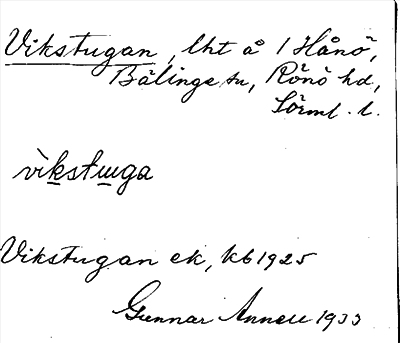 Vikstugan, lht å 1 Hånö,
Bälinge sn, Rönö hd,
Sörml. l.
vìkstuga
Vikstugan ek, kb 1925
Gunnar Annell 1933